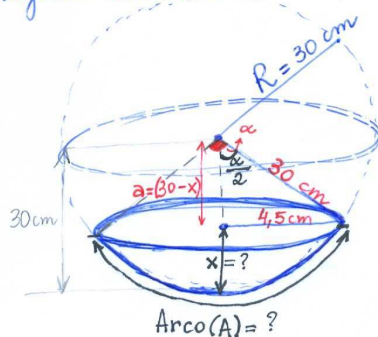 R = 30 cm
α
α/2
30 cm
a=(30-x)
4,5cm
30cm
x=?
Arco(A)= ?